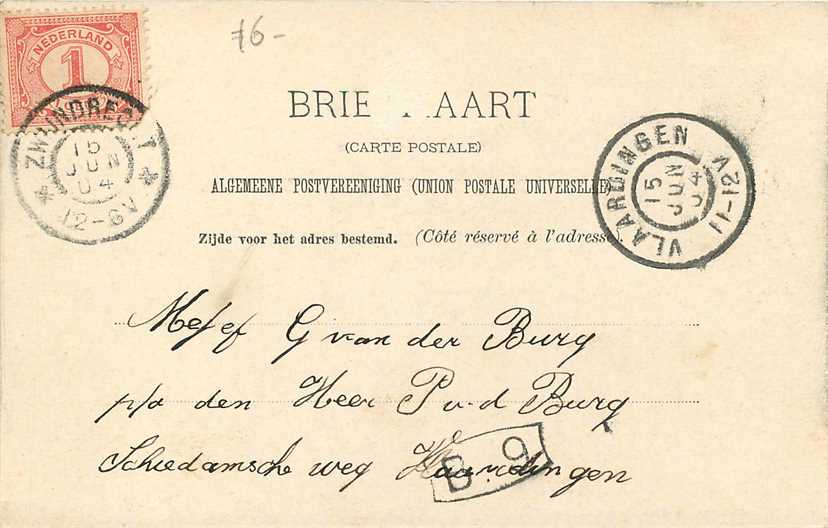 76-
NEDERLAND
1
ZWIJNDRECHT
15
JUN
04
12-6V
BRIE KAART
(CARTE POSTALE)
ALGEMEENE POSTVEREENIGING (UNION POSTALE UNIVERSELLE)
Zijde voor het adres bestemd. (Côté réservé à l'adresse).
VLAARDINGEN
15
JUN
04
11-12V
Mejef G van der Burg
p/a den Heer P v d Burg
Schiedamsche weg Vlaardingen
B 9